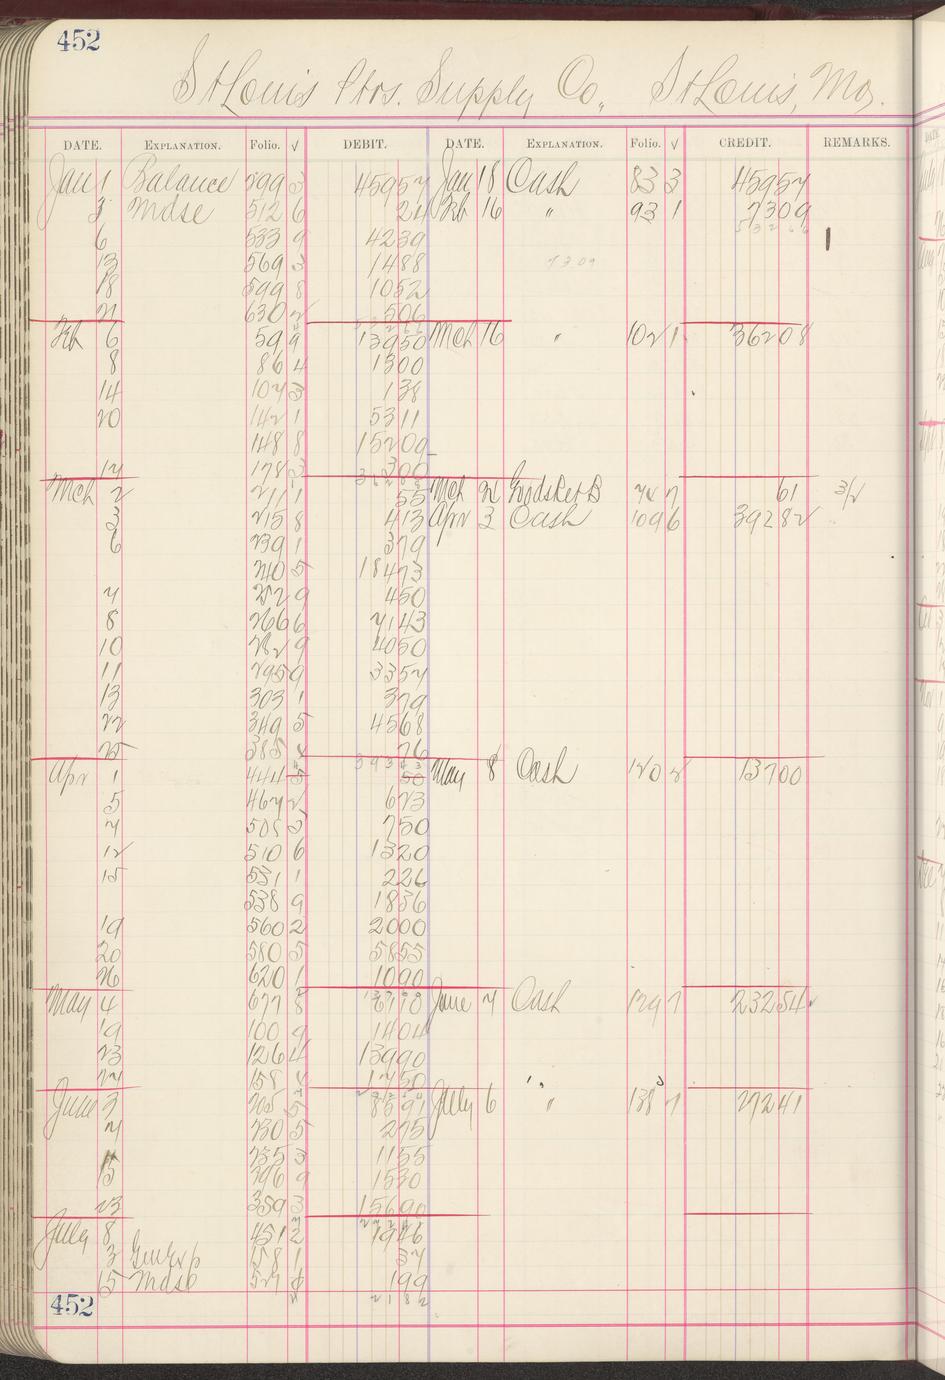 452
St Louis Ptrs. Supply Co., St Louis, Mo.
DATE. EXPLANATION. Folio. √ DEBIT. DATE. EXPLANATION. Folio. √ CREDIT. REMARKS.
Jan 1 Balance 599 3 45957 Jan 18 Cash 83 3 45957
3 Mdse 512 6 24 Feb 16 " 93 1 7309
6 533 9 4239
13 569 3 1488 7309
18 599 8 1052
21 630 2 506
Feb 6 59 9 13950 Mch 16 " 102 1 36208
8 86 4 1300
14 107 3 138
20 142 1 5311
148 8 15209
178 3 300
Mch 2 211 1 55 Mch 2 7 61 3/2
3 215 8 413 Apr 3 Cash 109 6 39282
6 239 1 379
240 5 18473
7 252 9 450
8 266 6 7143
10 282 9 4050
11 295 9 3357
13 303 1 379
22 349 5 4568
25 385 4 76
Apr 1 444 5 50 May 8 Cash 120 2 13700
5 467 2 623
7 505 3 750
12 510 6 1320
15 531 1 226
538 9 1836
19 560 2 2000
20 580 5 5855
26 620 1 1090
May 4 677 8 6710 June 7 Cash 129 7 23254
19 100 9 1404
23 126 4 13990
27 158 4 1450
June 2 205 5 8591 July 6 " 138 7 27241
7 230 5 275
255 3 1155
15 296 9 1530
23 359 3 15690
July 8 451 2 1946
3 Gen Exp 158 1 37
15 Mdse 527 199
2182
452